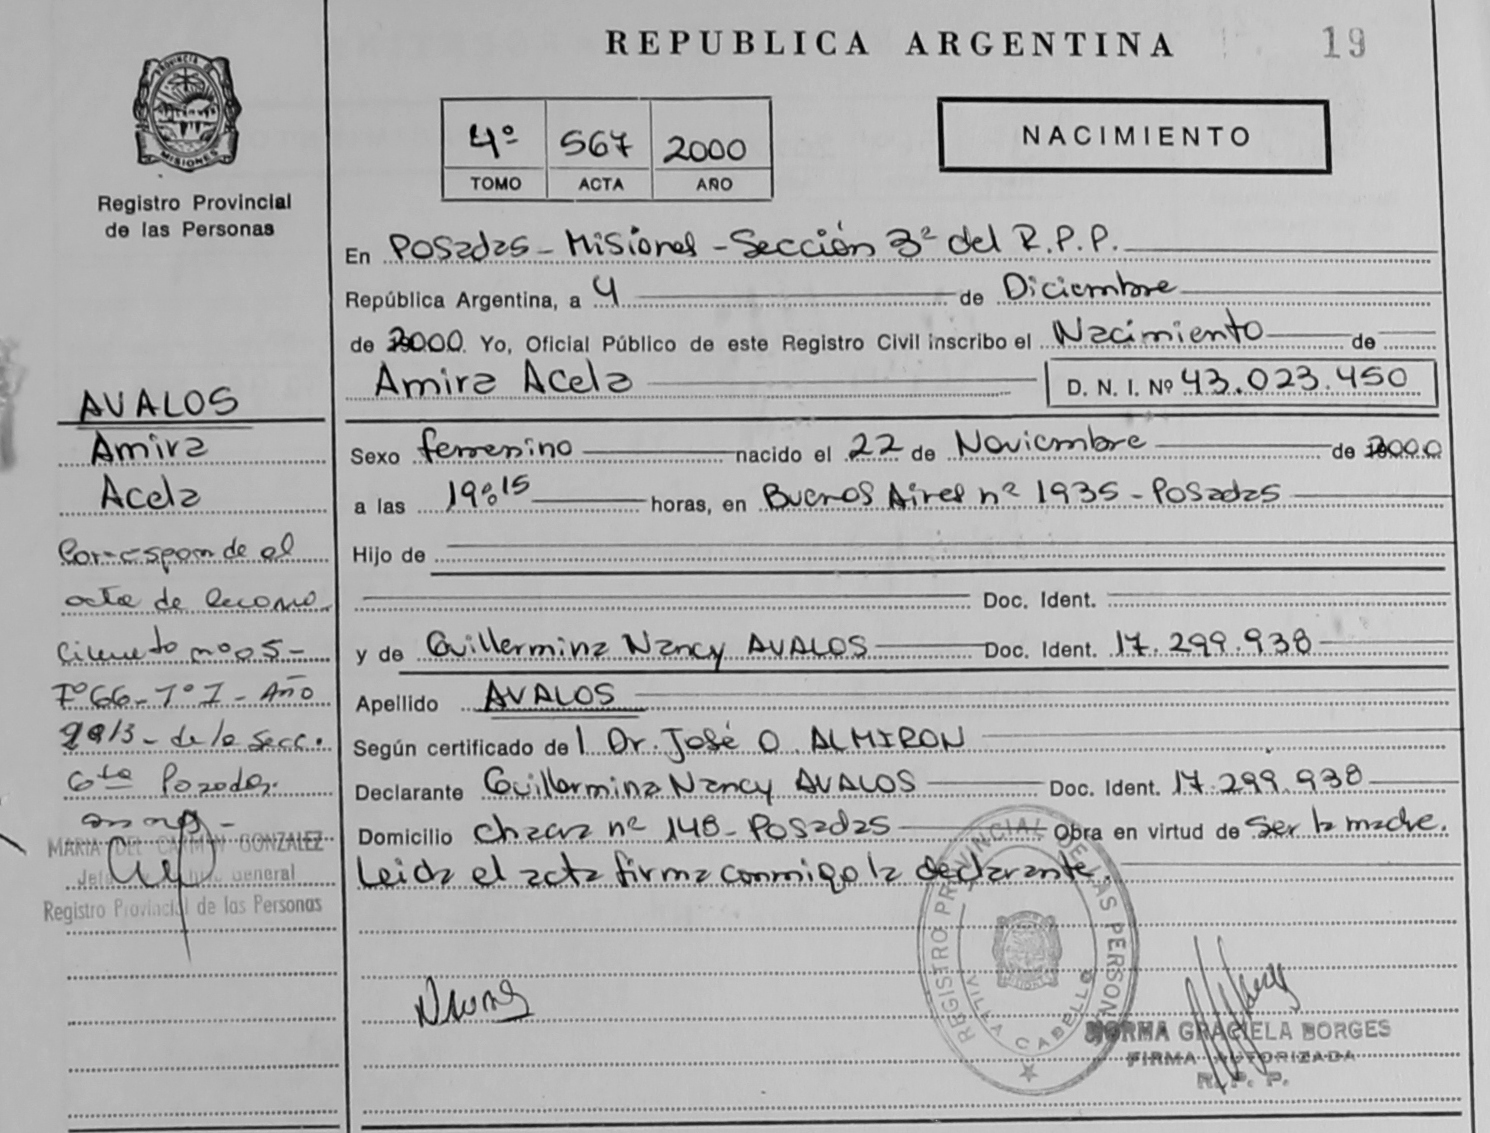 REPUBLICA ARGENTINA
19
PROVINCIA DE MISIONES
Registro Provincial
de las Personas
4º 567 2000
TOMO ACTA AÑO
NACIMIENTO
En Posadas - Misiones - Sección 3ª del R.P.P.
República Argentina, a 4 de Diciembre
de 2000. Yo, Oficial Público de este Registro Civil inscribo el Nacimiento de
Amira Acela D. N. I. Nº 43.023.450
Sexo femenino nacido el 22 de Noviembre de 2000
a las 19:15 horas, en Buenos Aires nº 1935 - Posadas
Hijo de
Doc. Ident.
y de Guillermina Nancy AVALOS Doc. Ident. 17.299.938
Apellido AVALOS
Según certificado del Dr. José O. ALMIRON
Declarante Guillermina Nancy AVALOS Doc. Ident. 17.299.938
Domicilio chacra nº 148 - Posadas Obra en virtud de ser la madre.
Leida el acta firma conmigo la declarante.
AVALOS
Amira
Acela
Corresponde al
acta de Recono
cimiento nº 05 -
Fº 66 - Tº I - Año
2013 - de la Secc.
6ta Posadas.
MARIA DEL CARMEN GONZALEZ
General
Registro Provincial de las Personas
REGISTRO PROVINCIAL DE LAS PERSONAS
VILLA CABELLO
NORMA GRACIELA BORGES
FIRMA AUTORIZADA
R. P. P.